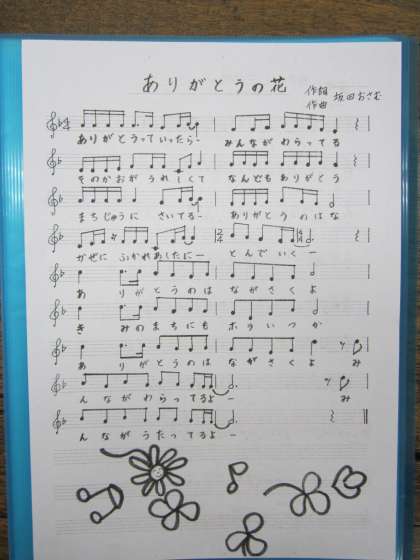 ありがとうの花
作詞 作曲 坂田おさむ
ありがとうっていったら- みんながわらってる
そのかおがうれしくて なんどもありがとう
まちじゅうに さいてる- ありがとう のはな
かぜに ふかれあしたに- とんでいくー
ありがとうのは ながさくよ
きみのまちにも ホラいつか
ありがとうのは ながさくよ み
んながわらってるよー み
んながうたってるよー